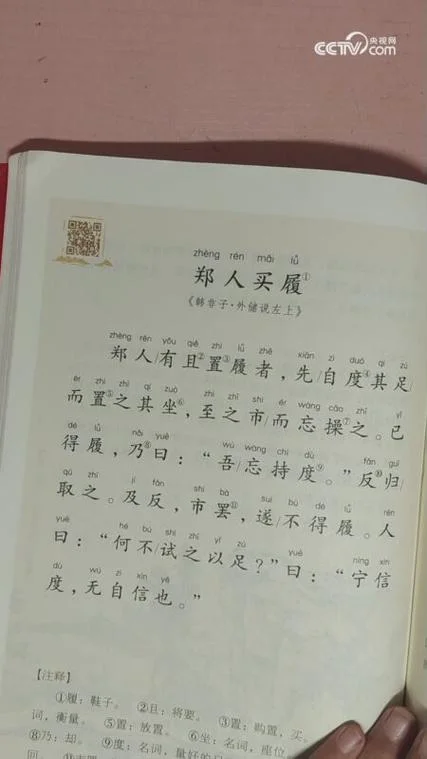 央视网
CCTV.com
zhèng rén mǎi lǚ
郑人买履①
《韩非子·外储说左上》
zhèng rén yǒu qiě zhì lǚ zhě xiān zì duó qí zú
郑人/有且②置③履者，先/自度④其足
ér zhì zhī qí zuò zhì zhī shì ér wàng cāo zhī yǐ
而置⑤之其坐⑥，至之市/而忘操⑦之。已
dé lǚ nǎi yuē wú wàng chí dù fǎn guī
得履，乃⑧曰：“吾/忘持度⑨。”反⑩归
qǔ zhī jí fǎn shì bà suì bù dé lǚ rén
取之。及反，市罢⑪，遂/不得履。人
yuē hé bù shì zhī yǐ zú yuē nìng xìn
曰：“何不/试之以足？”曰：“宁信
dù wú zì xìn yě
度，无自信也。”
【注释】
①履：鞋子。②且：将要。③置：购置，买。
词，衡量。⑤置：放置。⑥坐：名词，座位
⑧乃：却。⑨度：名词，量好的尺